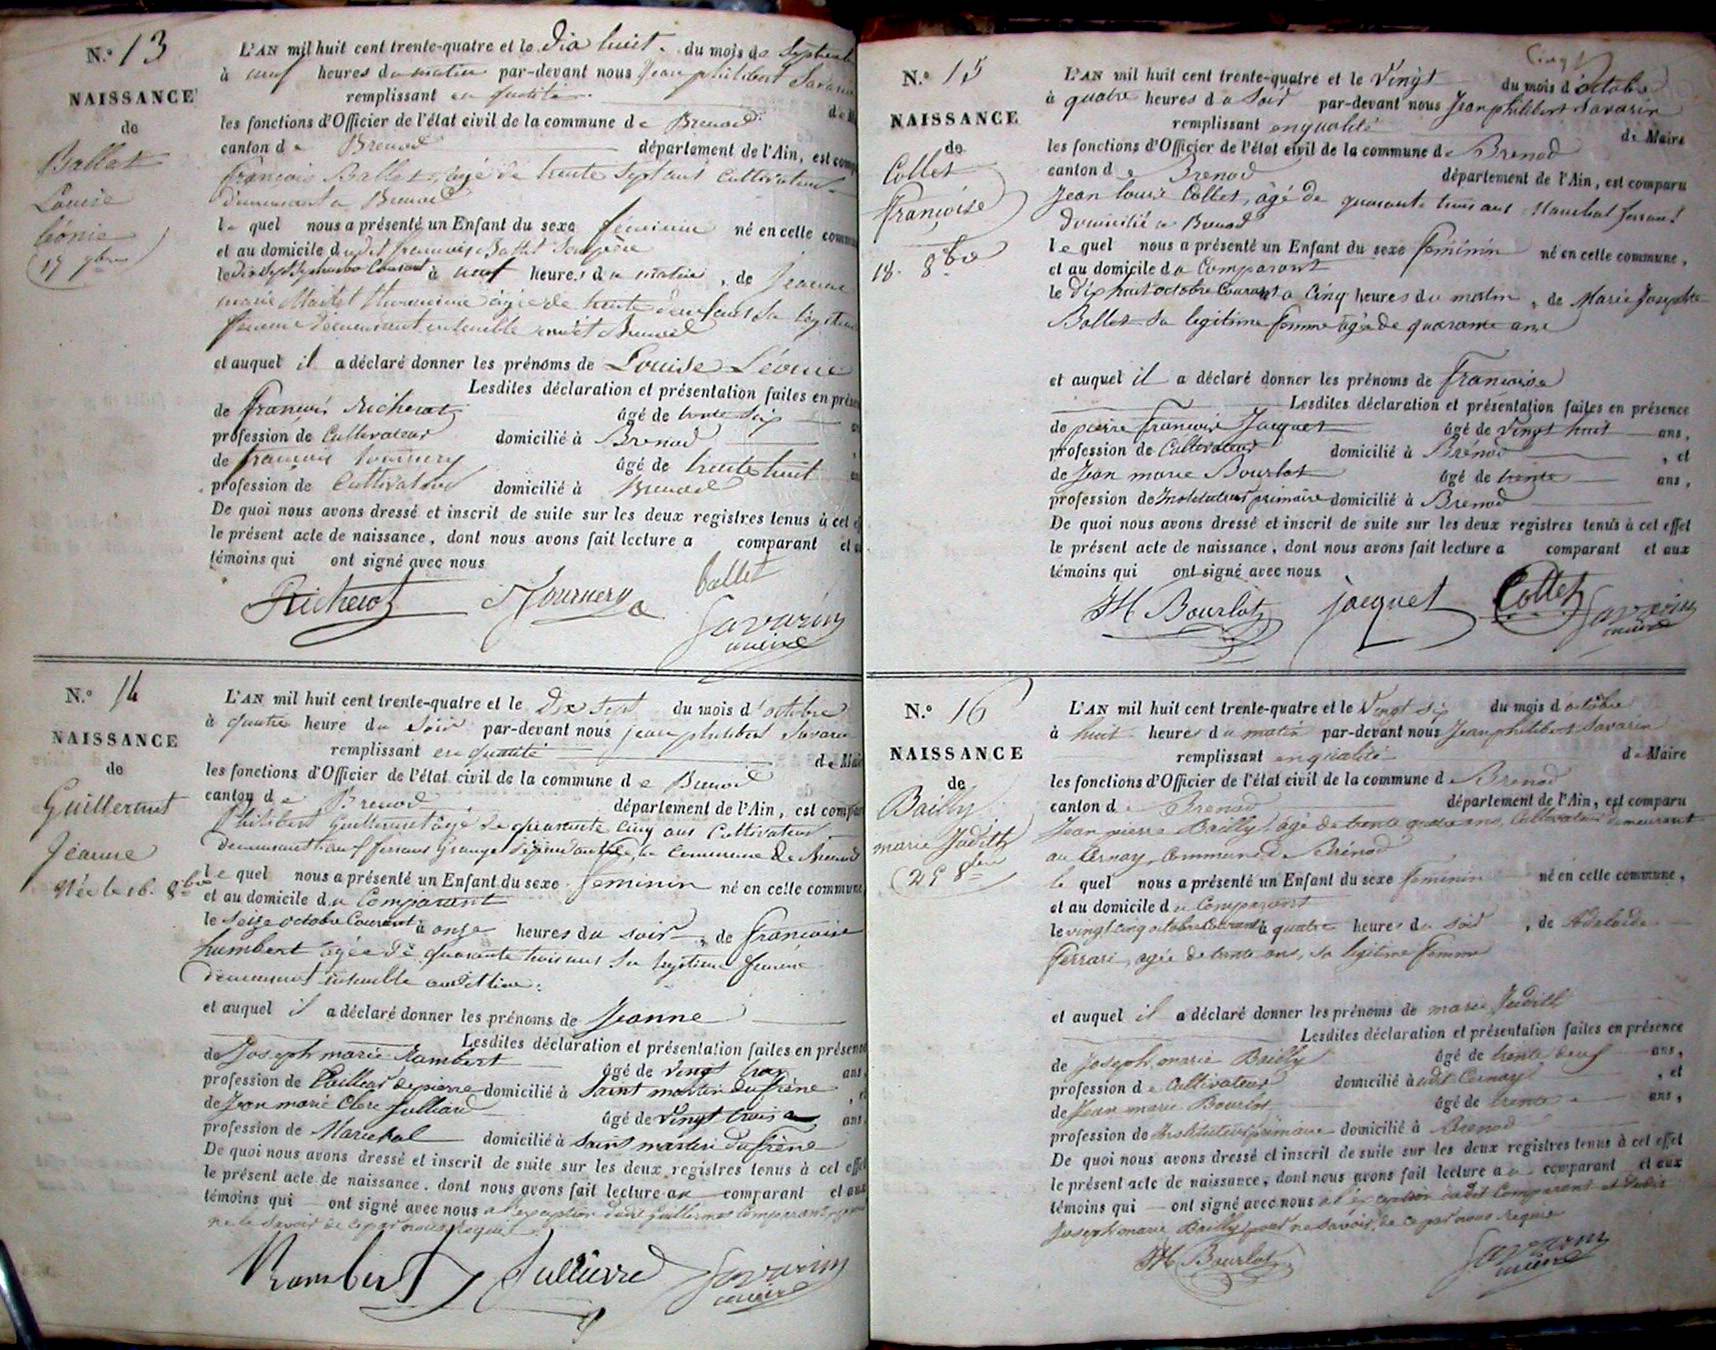 N.° 13
NAISSANCE
de
Ballet
Louise
Léonie
17 7bre
L'AN mil huit cent trente-quatre et le dix huit du mois de Septembre
à neuf heures du matin par-devant nous Jean philibert Savarin
remplissant en qualité de
les fonctions d'Officier de l'état civil de la commune de Brenod
canton de Brenod département de l'Ain, est comp
François Ballet, agé de trente sept ans Cultivateur
demeurant a Brenod
le quel nous a présenté un Enfant du sexe féminin né en cette commu
et au domicile dudit francois Ballet Son père
le dix sept Septembre Courant à neuf heures du matin, de Jeanne
marie agée de trente ans Sa légitime
femme demeurant ensemble Brenod
et auquel il a déclaré donner les prénoms de Louise Léonie
Lesdites déclaration et présentation faites en prése
de François Richerot âgé de trente six
profession de Cultivateur domicilié à Brenod
de francois tournery âgé de trente huit
profession de Cultivateur domicilié à Brenod
De quoi nous avons dressé et inscrit de suite sur les deux registres tenus à cet e
le présent acte de naissance, dont nous avons fait lecture a comparant et a
témoins qui ont signé avec nous
Richerot Tournery ballet
Savarin
maire
N.° 14
NAISSANCE
de
Guillermet
Jeanne
Née le 16. 8bre
L'AN mil huit cent trente-quatre et le dix sept du mois d'octobre
à quatre heure du Soir par-devant nous jean philibert Savarin
remplissant en qualité de Mai
les fonctions d'Officier de l'état civil de la commune de Brenod
canton de Brenod département de l'Ain, est compar
Philibert Guillermet agé de quarante cinq ans Cultivateur
demeurant grange dépendante de la Commune de Brenod
le quel nous a présenté un Enfant du sexe feminin né en cette commune
et au domicile du Comparant
le seize octobre Courant à onze heures du soir, de francoise
humbert agée de quarante trois ans Sa legitime femme
demeurant ensemble audit lieu.
et auquel il a déclaré donner les prénoms de Jeanne
Lesdites déclaration et présentation faites en présen
de Joseph marie Rambert âgé de vingt ans
profession de tailleur de pierre domicilié à Saint martin du frène
de Jean marie Clerc Julliard âgé de vingt trois ans
profession de Marechal domicilié à Saint martin du frène
De quoi nous avons dressé et inscrit de suite sur les deux registres tenus à cet effe
le présent acte de naissance, dont nous avons fait lecture au comparant et aux
témoins qui ont signé avec nous a l'exception dudit Guillermet Comparant
ne le Savoir de ce par nous requit
Rambert Savarin
maire
N.° 15
NAISSANCE
de
Collet
Françoise
18. 8bre
L'AN mil huit cent trente-quatre et le Vingt du mois d'octobre
à quatre heures du Soir par-devant nous Jean philibert Savarin
remplissant en qualité de Maire
les fonctions d'Officier de l'état civil de la commune de Brenod
canton de Brenod département de l'Ain, est comparu
Jean louis Collet, âgé de quarante trois ans Marechal ferrant
domicilié a Brenod
le quel nous a présenté un Enfant du sexe feminin né en cette commune,
et au domicile du Comparant
le dix huit octobre Courant à Cinq heures du matin, de Marie Josephte
Ballet Sa legitime femme agée de quarante ans
et auquel il a déclaré donner les prénoms de francoise
Lesdites déclaration et présentation faites en présence
de pierre francois Jacquet âgé de Vingt huit ans,
profession de Cultivateur domicilié à Brénod, et
de Jean marie Bourlot âgé de trente ans,
profession de Instituteur primaire domicilié à Brenod
De quoi nous avons dressé et inscrit de suite sur les deux registres tenus à cet effet
le présent acte de naissance, dont nous avons fait lecture a comparant et aux
témoins qui ont signé avec nous
JM Bourlot jacquet Collet Savarin
maire
N.° 16
NAISSANCE
de
Bailly
marie Judith
25 8bre
L'AN mil huit cent trente-quatre et le Vingt six du mois d'octobre
à huit heures du matin par-devant nous Jean philibert Savarin
remplissant en qualité de Maire
les fonctions d'Officier de l'état civil de la commune de Brenod
canton de Brenod département de l'Ain, est comparu
Jean pierre Bailly, agé de trente quatre ans, Cultivateur demeurant
au Cernay, Commune de Brénod
le quel nous a présenté un Enfant du sexe feminin né en cette commune,
et au domicile du Comparant
le vingt cinq octobre Courant à quatre heures du soir, de Adelaide
Ferrari, agée de trente ans, sa legitime femme
et auquel il a déclaré donner les prénoms de marie Judith
Lesdites déclaration et présentation faites en présence
de Joseph marie Bailly âgé de trente deux ans,
profession de Cultivateur domicilié audit Cernay, et
de Jean marie Bourlot âgé de trente ans,
profession de Instituteur primaire domicilié à Brenod
De quoi nous avons dressé et inscrit de suite sur les deux registres tenus à cet effet
le présent acte de naissance, dont nous avons fait lecture au comparant et aux
témoins qui ont signé avec nous a l'exception dudit Comparant et dudit
Joseph marie Bailly pour ne Savoir, de ce par nous requis
JM Bourlot Savarin
maire